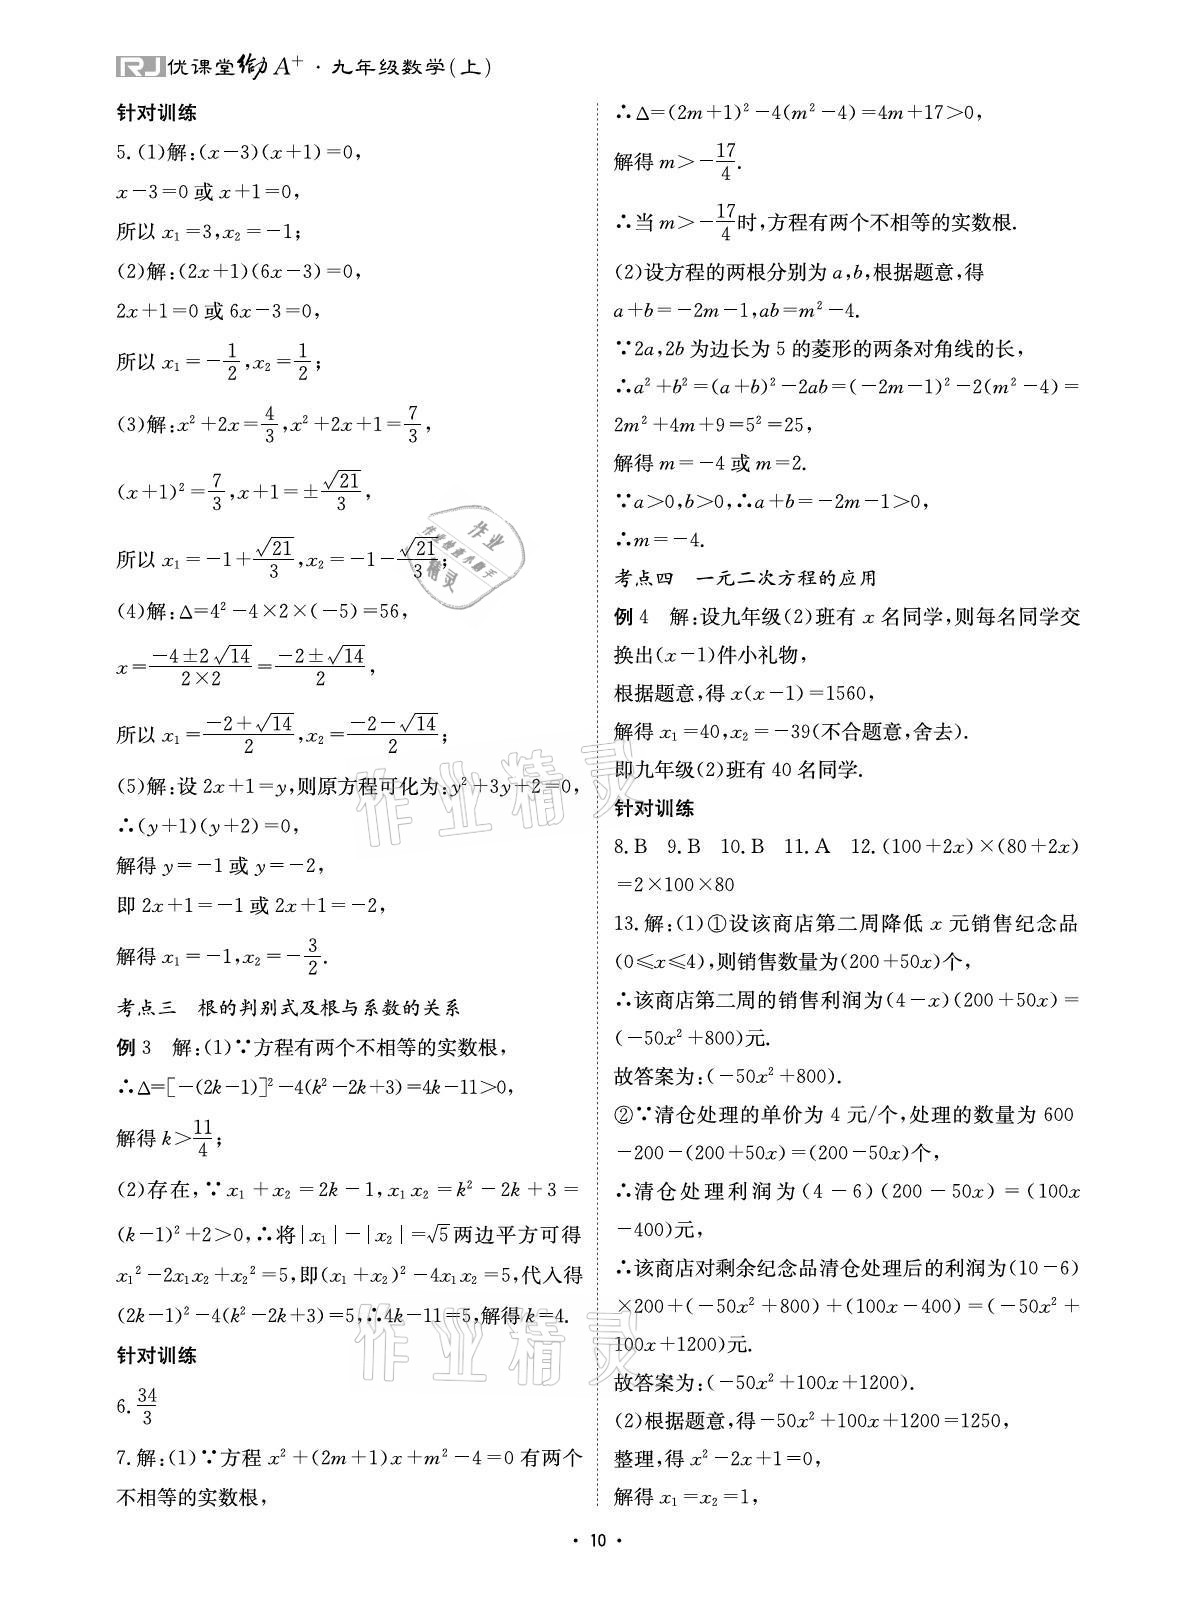 RJ优课堂给力A⁺·九年级数学(上)
针对训练
5.(1)解:(x-3)(x+1)=0,
x-3=0 或 x+1=0,
所以 x₁=3,x₂=-1;
(2)解:(2x+1)(6x-3)=0,
2x+1=0 或 6x-3=0,
所以 x₁=-1/2,x₂=1/2;
(3)解:x²+2x=4/3,x²+2x+1=7/3,
(x+1)²=7/3,x+1=±√21/3,
所以 x₁=-1+√21/3,x₂=-1-√21/3;
(4)解:Δ=4²-4×2×(-5)=56,
x=(-4±2√14)/(2×2)=(-2±√14)/2,
所以 x₁=(-2+√14)/2,x₂=(-2-√14)/2;
(5)解:设 2x+1=y,则原方程可化为:y²+3y+2=0,
∴(y+1)(y+2)=0,
解得 y=-1 或 y=-2,
即 2x+1=-1 或 2x+1=-2,
解得 x₁=-1,x₂=-3/2.
考点三 根的判别式及根与系数的关系
例 3 解:(1)∵方程有两个不相等的实数根,
∴Δ=[-(2k-1)]²-4(k²-2k+3)=4k-11>0,
解得 k>11/4;
(2)存在,∵x₁+x₂=2k-1,x₁x₂=k²-2k+3=
(k-1)²+2>0,∴将|x₁|-|x₂|=√5两边平方可得
x₁²-2x₁x₂+x₂²=5,即(x₁+x₂)²-4x₁x₂=5,代入得
(2k-1)²-4(k²-2k+3)=5,∴4k-11=5,解得 k=4.
针对训练
6.34/3
7.解:(1)∵方程 x²+(2m+1)x+m²-4=0 有两个
不相等的实数根,
∴Δ=(2m+1)²-4(m²-4)=4m+17>0,
解得 m>-17/4.
∴当 m>-17/4时,方程有两个不相等的实数根.
(2)设方程的两根分别为 a,b,根据题意,得
a+b=-2m-1,ab=m²-4.
∵2a,2b 为边长为 5 的菱形的两条对角线的长,
∴a²+b²=(a+b)²-2ab=(-2m-1)²-2(m²-4)=
2m²+4m+9=5²=25,
解得 m=-4 或 m=2.
∵a>0,b>0,∴a+b=-2m-1>0,
∴m=-4.
考点四 一元二次方程的应用
例 4 解:设九年级(2)班有 x 名同学,则每名同学交
换出(x-1)件小礼物,
根据题意,得 x(x-1)=1560,
解得 x₁=40,x₂=-39(不合题意,舍去).
即九年级(2)班有 40 名同学.
针对训练
8.B 9.B 10.B 11.A 12.(100+2x)×(80+2x)
=2×100×80
13.解:(1)①设该商店第二周降低 x 元销售纪念品
(0≤x≤4),则销售数量为(200+50x)个,
∴该商店第二周的销售利润为(4-x)(200+50x)=
(-50x²+800)元.
故答案为:(-50x²+800).
②∵清仓处理的单价为 4 元/个,处理的数量为 600
-200-(200+50x)=(200-50x)个,
∴清仓处理利润为(4-6)(200-50x)=(100x
-400)元,
∴该商店对剩余纪念品清仓处理后的利润为(10-6)
×200+(-50x²+800)+(100x-400)=(-50x²+
100x+1200)元.
故答案为:(-50x²+100x+1200).
(2)根据题意,得-50x²+100x+1200=1250,
整理,得 x²-2x+1=0,
解得 x₁=x₂=1,
·10·
作业精灵
作业精灵
作业
作业快速小助手
精灵